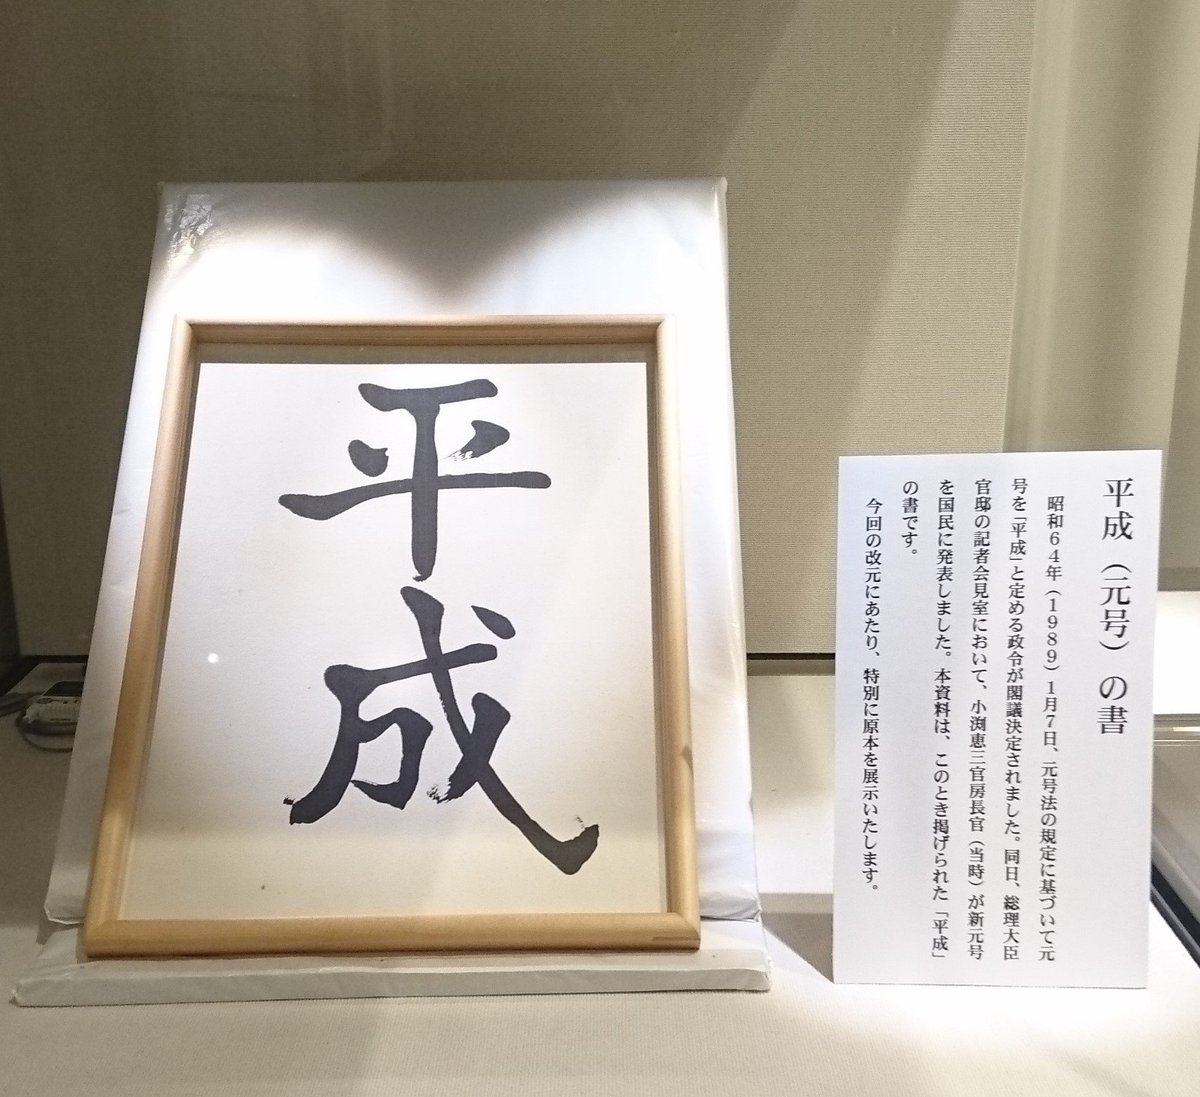 平成
平成（元号）の書
昭和６４年（１９８９）１月７日、元号法の規定に基づいて元
号を「平成」と定める政令が閣議決定されました。同日、総理大臣
官邸の記者会見室において、小渕恵三官房長官（当時）が新元号
を国民に発表しました。本資料は、このとき掲げられた「平成」
の書です。
今回の改元にあたり、特別に原本を展示いたします。